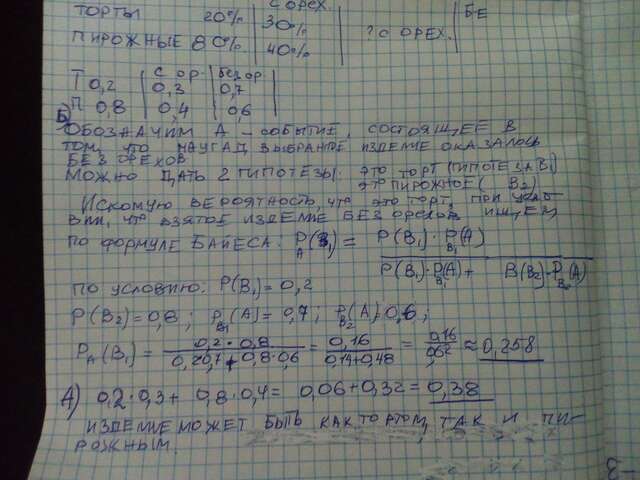 ТОРТЫ 20% С ОРЕХ. 30% БЕ
ПИРОЖНЫЕ 80% 40% ? С ОРЕХ.
С ОР. БЕЗ ОР.
Т 0,2 0,3 0,7
П 0,8 0,4 0,6
Б)
ОБОЗНАЧИМ А – СОБЫТИЕ, СОСТОЯЩ,ЕЕ В
ТОМ, ЧТО НАУГАД ВЫБРАННОЕ ИЗДЕЛИЕ ОКАЗАЛОСЬ
БЕЗ ОРЕХОВ
МОЖНО ДАТЬ 2 ГИПОТЕЗЫ: ЭТО ТОРТ (ГИПОТЕЗА B₁)
ЭТО ПИРОЖНОЕ ( B₂)
ИСКОМУЮ ВЕРОЯТНОСТЬ, ЧТО ЭТО ТОРТ, ПРИ УСЛО-
ВИИ, ЧТО ВЗЯТОЕ ИЗДЕЛИЕ БЕЗ ОРЕХОВ
ПО ФОРМУЛЕ БАЙЕСА. P_A(B₁) = P(B₁)·P_B₁(A) / P(B₁)·P_B₁(A) + B(B₂)·P_B₂(A)
ПО УСЛОВИЮ. P(B₁) = 0,2
P(B₂) = 0,8 ; P_B₁(A) = 0,7 ; P_B₂(A) 0,6 ;
P_A(B₁) = 0,2·0,8 / 0,20,7+0,8·0,6 = 0,16 / 0,14+0,48 = 0,16 / 0,62 ≈ 0,258
А) 0,2·0,3 + 0,8·0,4 = 0,06 + 0,32 = 0,38
ИЗДЕЛИЕ МОЖЕТ БЫТЬ КАК ТОРТОМ, ТАК И ПИ-
РОЖНЫМ.